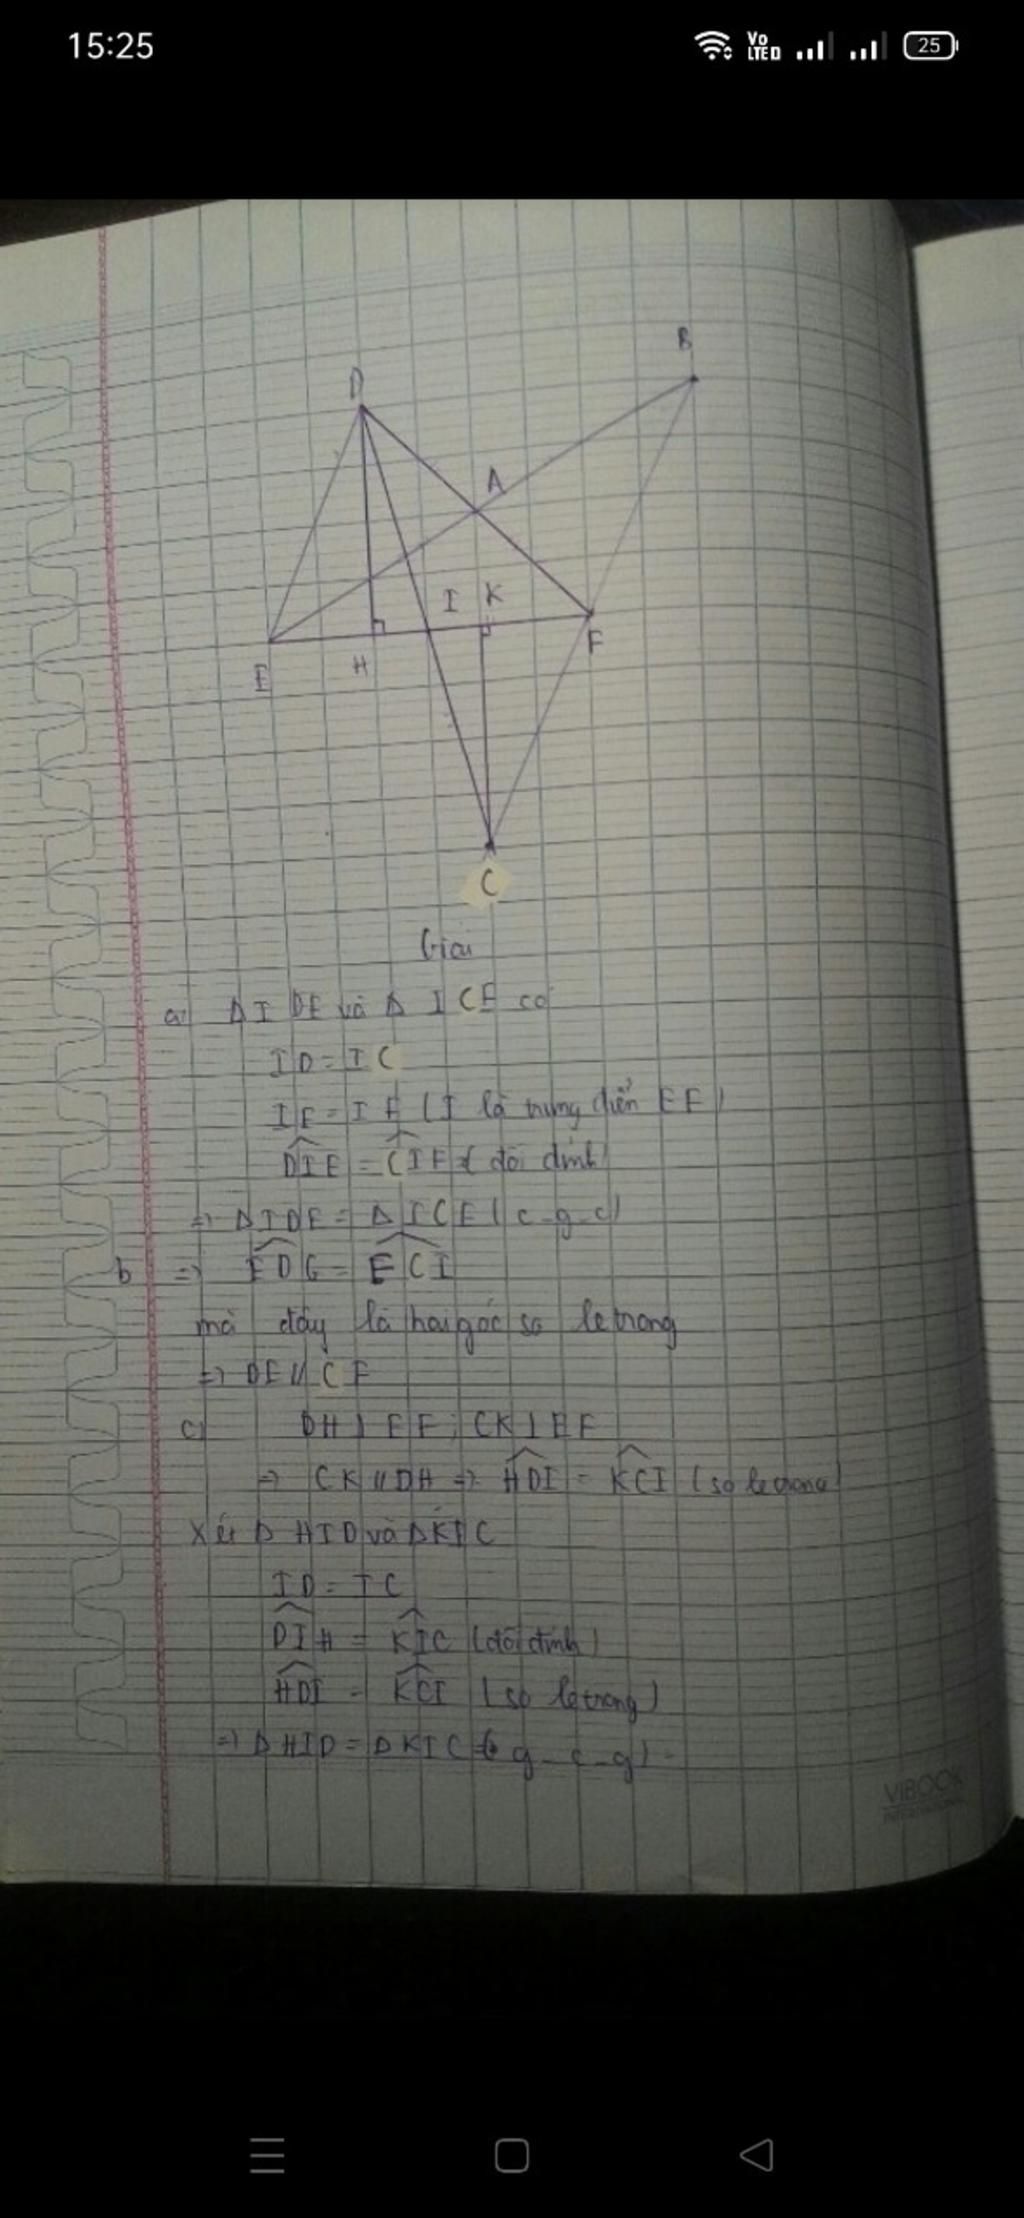 15:25
Vo
LTE D
25
B
D
A
I K
E
H
F
C
Giải
a) Δ I DE và Δ I CF có
ID = IC
IE = IF (I là trung điểm EF)
DIE = CIF (đối đỉnh)
=> ΔIDE = ΔICF (c-g-c)
b => EDG = FCI
mà đây là hai góc so le trong
=> DE // CF
c) DH ⊥ EF ; CK ⊥ EF
=> CK // DH => HDI = KCI (so le trong)
Xét Δ HID và ΔKIC
ID = IC
DIH = KIC (đối đỉnh)
HDI = KCI (so le trong)
=> ΔHID = ΔKIC (g-c-g)
VIBOOK